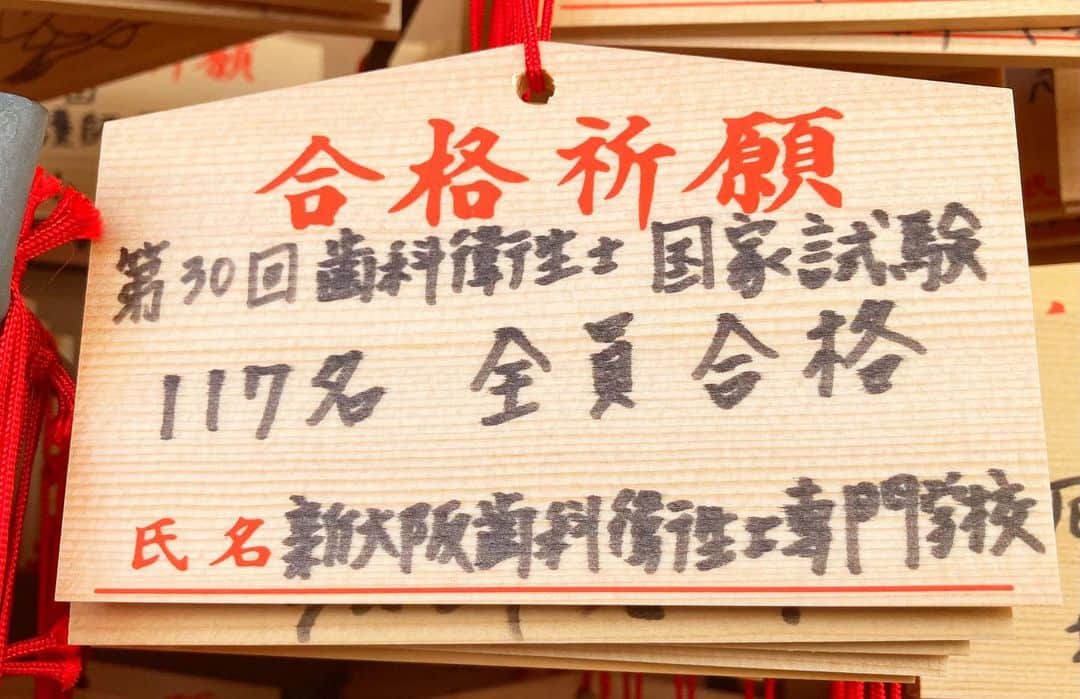 合格祈願
第30回歯科衛生士 国家試験
117名 全員合格
氏名 新大阪歯科衛生士専門学校